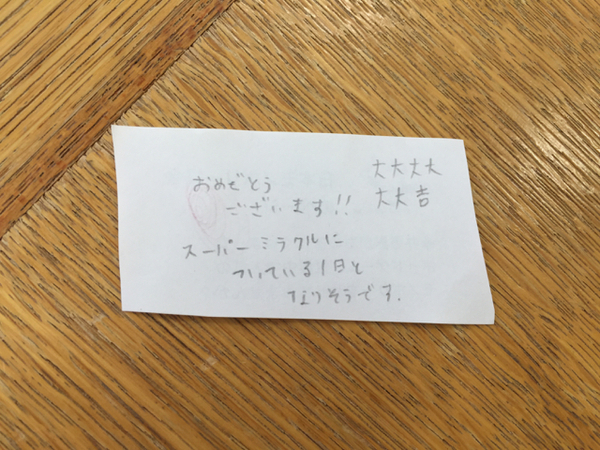 大大大大
大大吉
おめでとう
ございます!!
スーパーミラクルに
ついている1日と
なりそうです.